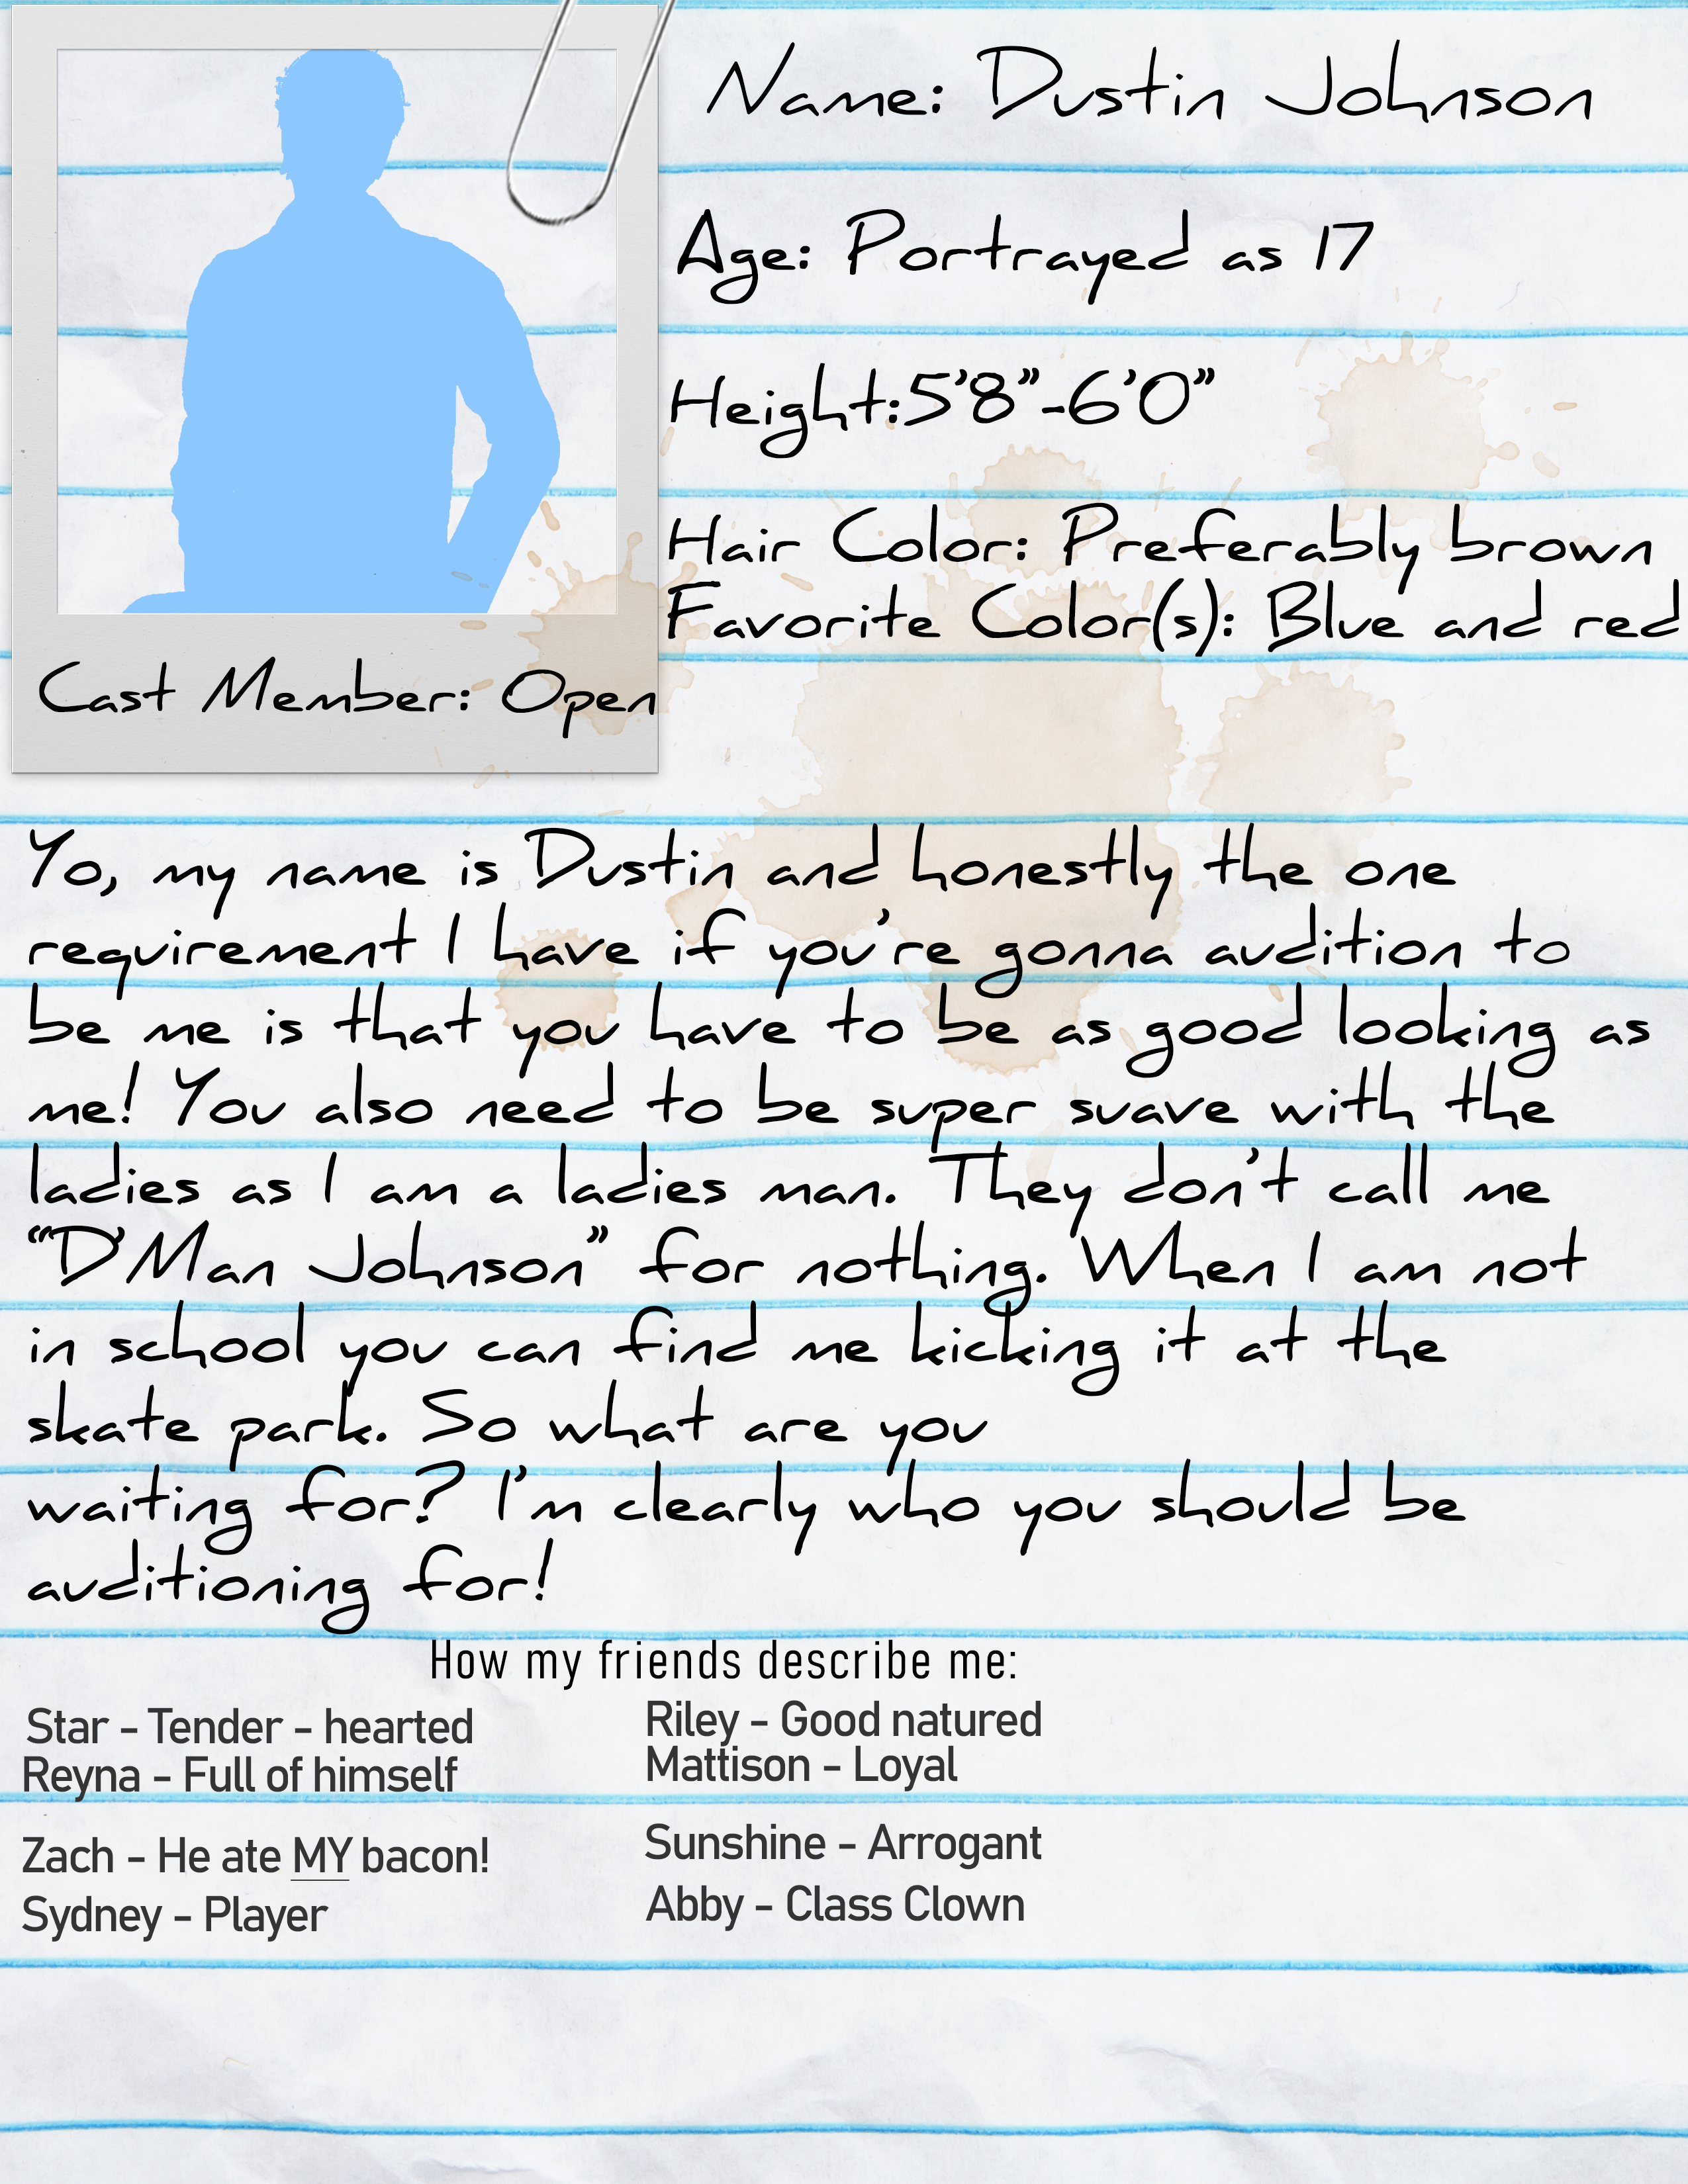 Name: Dustin Johnson
Age: Portrayed as 17
Height:5'8"-6'0"
Hair Color: Preferably brown
Favorite Color(s): Blue and red
Cast Member: Open
Yo, my name is Dustin and honestly the one
requirement I have if you're gonna audition to
be me is that you have to be as good looking as
me! You also need to be super suave with the
ladies as I am a ladies man. They don't call me
"D'Man Johnson" for nothing. When I am not
in school you can find me kicking it at the
skate park. So what are you
waiting for? I'm clearly who you should be
auditioning for!
How my friends describe me:
Star - Tender - hearted
Reyna - Full of himself
Zach - He ate MY bacon!
Sydney - Player
Riley - Good natured
Mattison - Loyal
Sunshine - Arrogant
Abby - Class Clown